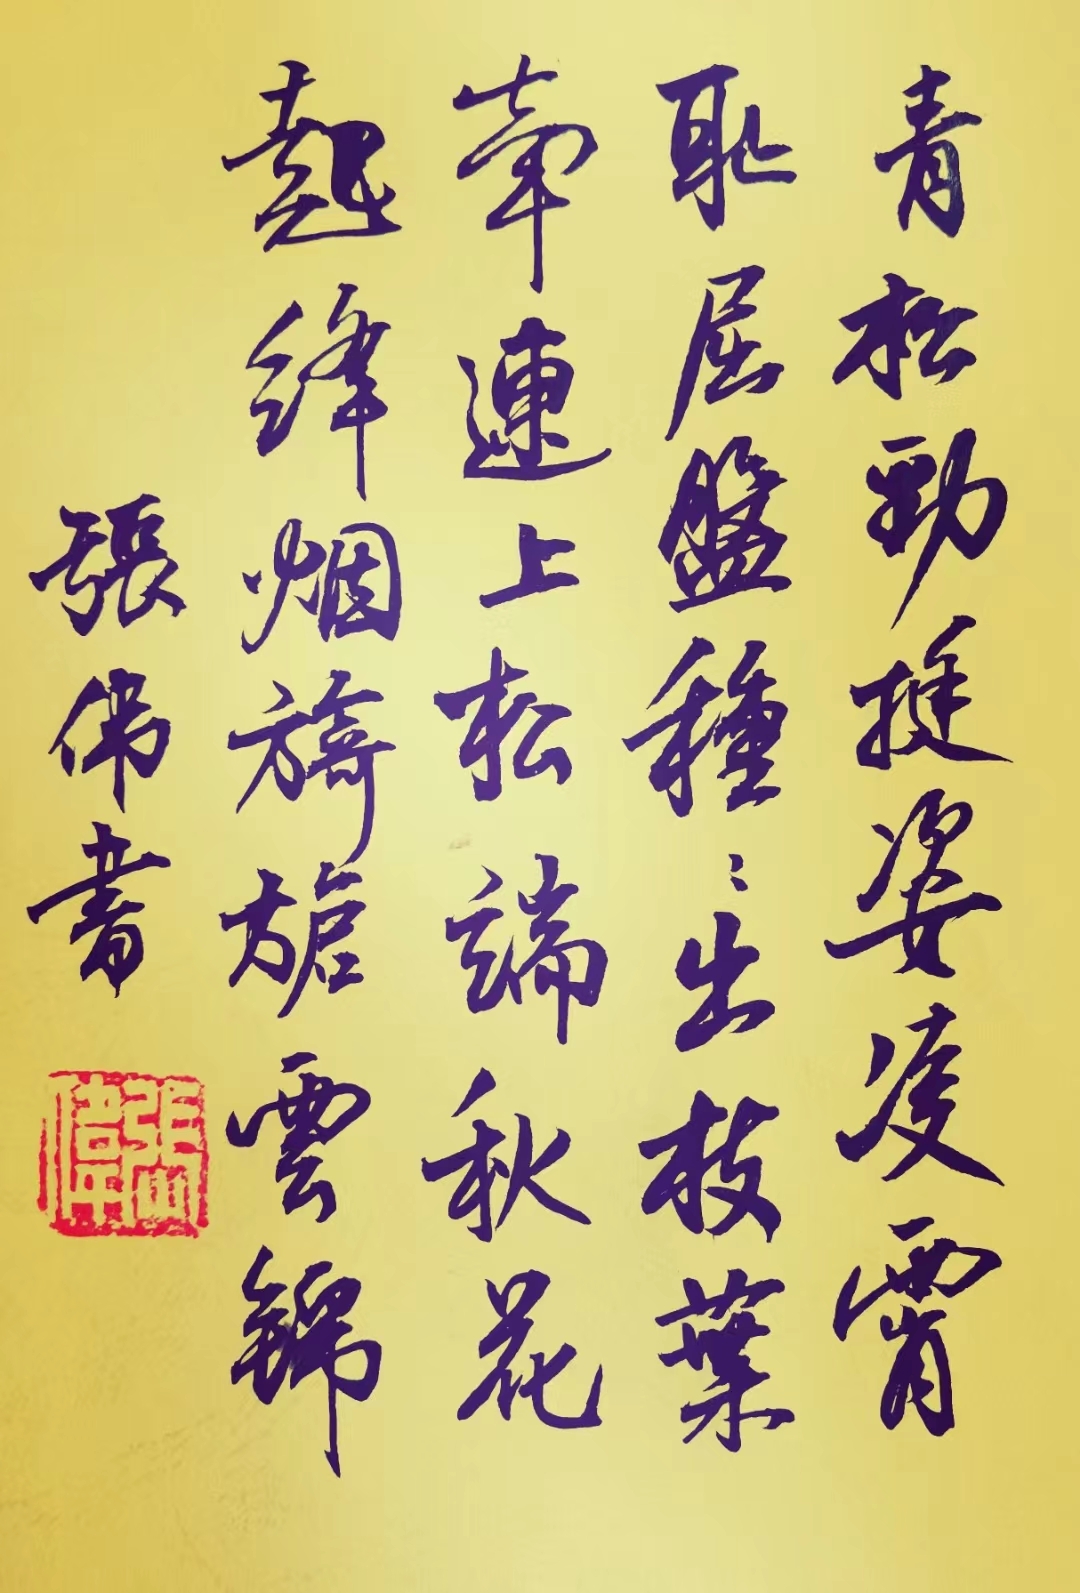 青松勁挺姿凌霄
耻屈盤種〻出枝葉
牽連上松端秋花
起絳烟旖旎雲錦
張偉書